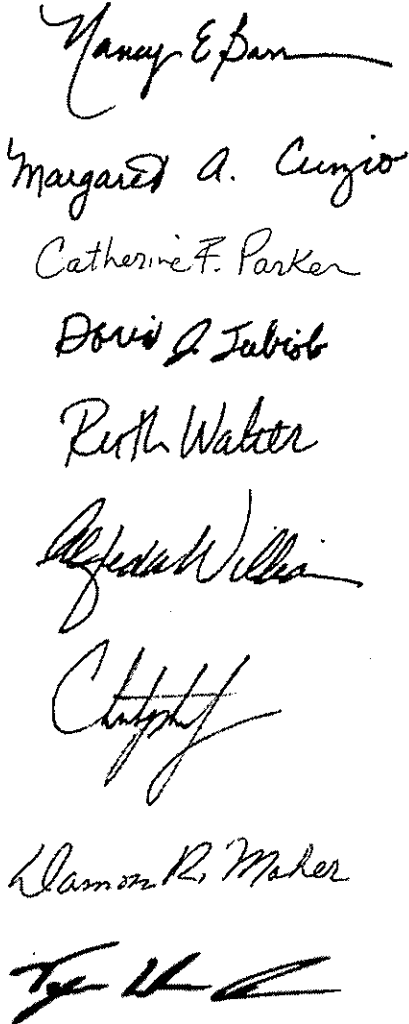 Nancy E Barr
Margaret A. Cunzio
Catherine F. Parker
David J. Tubiolo
Ruth Walter
Alfreda Willia
Christopher
Damon R. Maher